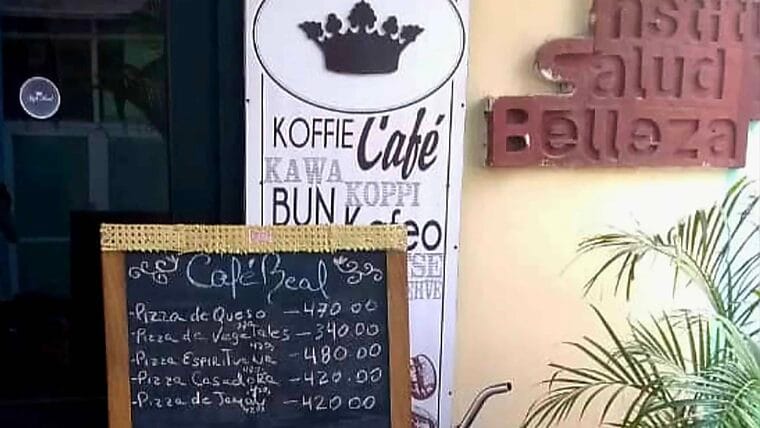 KOFFIE
Café
KAWA
KOPPI
BUN
Kafeo
Instituto
Salud
Belleza
Café Real
-Pizza de Queso - 470.00
-Pizza de Vegetales - 340.00
-Pizza ESPIRITUANA - 480.00
-Pizza Casadora - 420.00
-Pizza de Jamón - 420.00